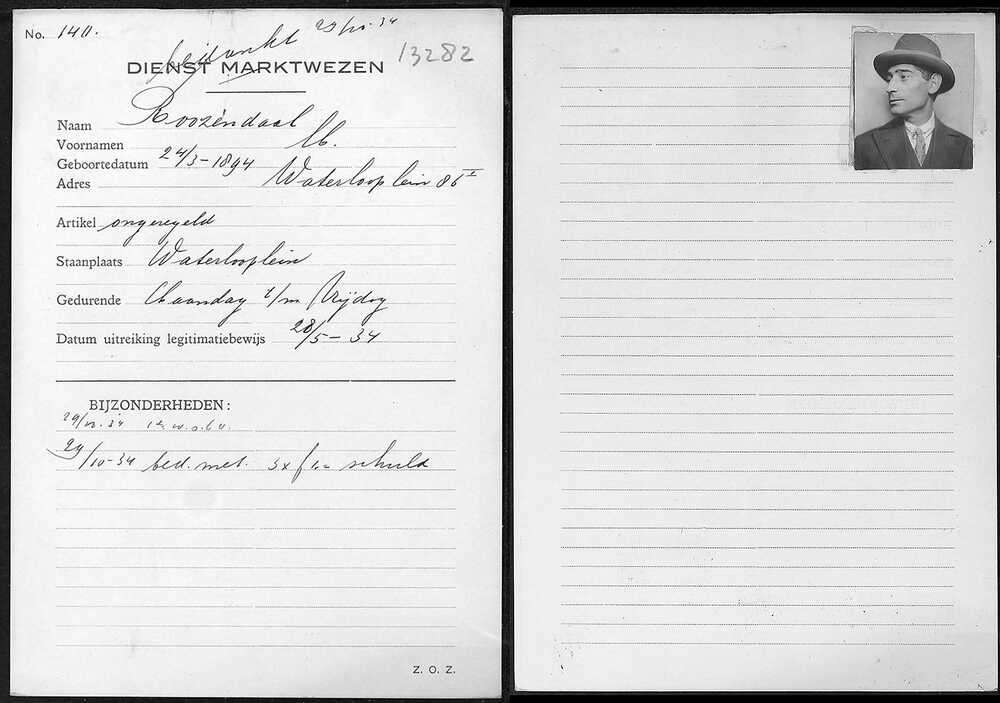 No. 140.
bedankt 29/10-34
13282
DIENST MARKTWEZEN
Naam Roozendaal
Voornamen M.
Geboortedatum 24/3-1894
Adres Waterlooplein 86 I
Artikel ongeregeld
Staanplaats Waterlooplein
Gedurende Maandag t/m Vrijdag
Datum uitreiking legitimatiebewijs 28/5-34
BIJZONDERHEDEN:
29/10-34
29/10-34 bed. met. 3x f 1.= schuld
Z. O. Z.